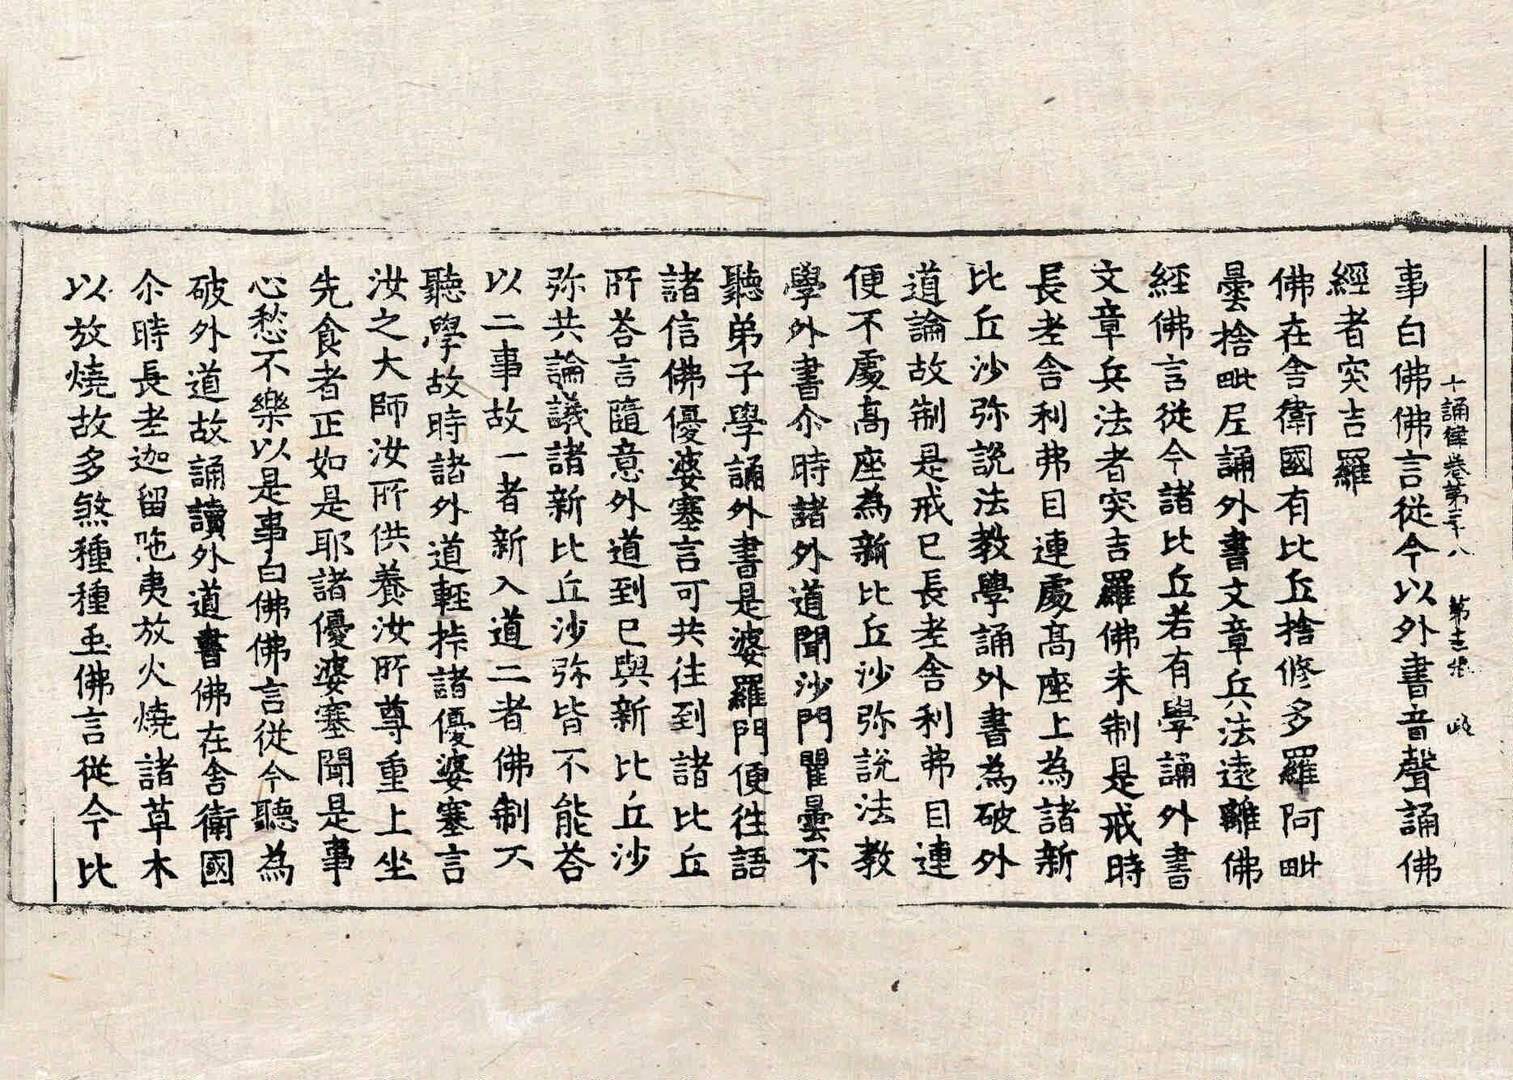 十誦律卷第三十八 第十三張
事白佛佛言從今以外書音聲誦佛
經者突吉羅
佛在舍衛國有比丘捨修多羅阿毗
曇捨毗尼誦外書文章兵法遠離佛
經佛言從今諸比丘若有學誦外書
文章兵法者突吉羅佛未制是戒時
長老舍利弗目連處高座上為諸新
比丘沙弥說法教學誦外書為破外
道論故制是戒已長老舍利弗目連
便不處高座為新比丘沙弥說法教
學外書尒時諸外道聞沙門瞿曇不
聽弟子學誦外書是婆羅門便往語
諸信佛優婆塞言可共往到諸比丘
所荅言隨意外道到已與新比丘沙
弥共論議諸新比丘沙弥皆不能荅
以二事故一者新入道二者佛制不
聽學故時諸外道輕㧗諸優婆塞言
汝之大師汝所供養汝所尊重上坐
先食者正如是耶諸優婆塞聞是事
心愁不樂以是事白佛佛言從今聽為
破外道故誦讀外道書佛在舍衛國
尒時長老迦留陁夷放火燒諸草木
以放燒故多煞種種虫佛言從今比